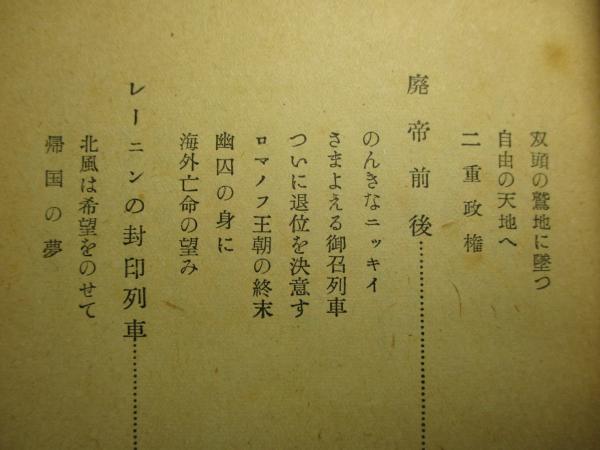 双頭の鷲地に墜つ
自由の天地へ
二重政権
廃帝前後……………
のんきなニッキイ
さまよえる御召列車
ついに退位を決意す
ロマノフ王朝の終末
幽囚の身に
海外亡命の望み
レーニンの封印列車……………
北風は希望をのせて
帰国の夢